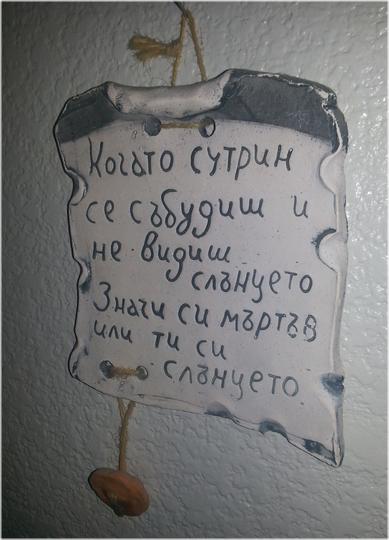 Когато сутрин
се събудиш и
не видиш
слънцето
Значи си мъртъв
или ти си
слънцето